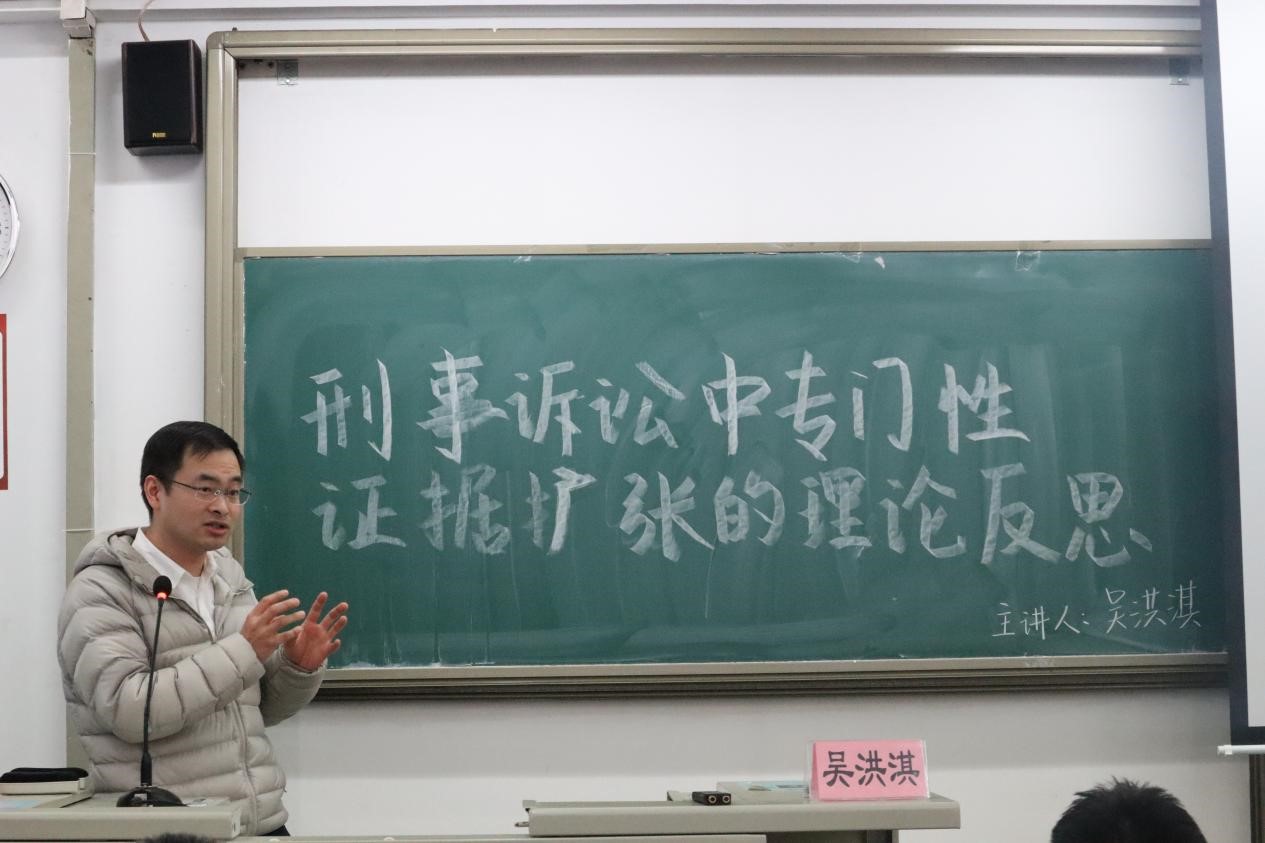 刑事诉讼中专门性
证据扩张的理论反思
主讲人:吴洪淇
吴洪淇